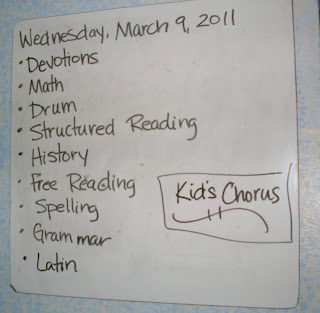 Wednesday, March 9, 2011
• Devotions
• Math
• Drum
• Structured Reading
• History
• Free Reading
• Spelling
• Grammar
• Latin
Kid's Chorus